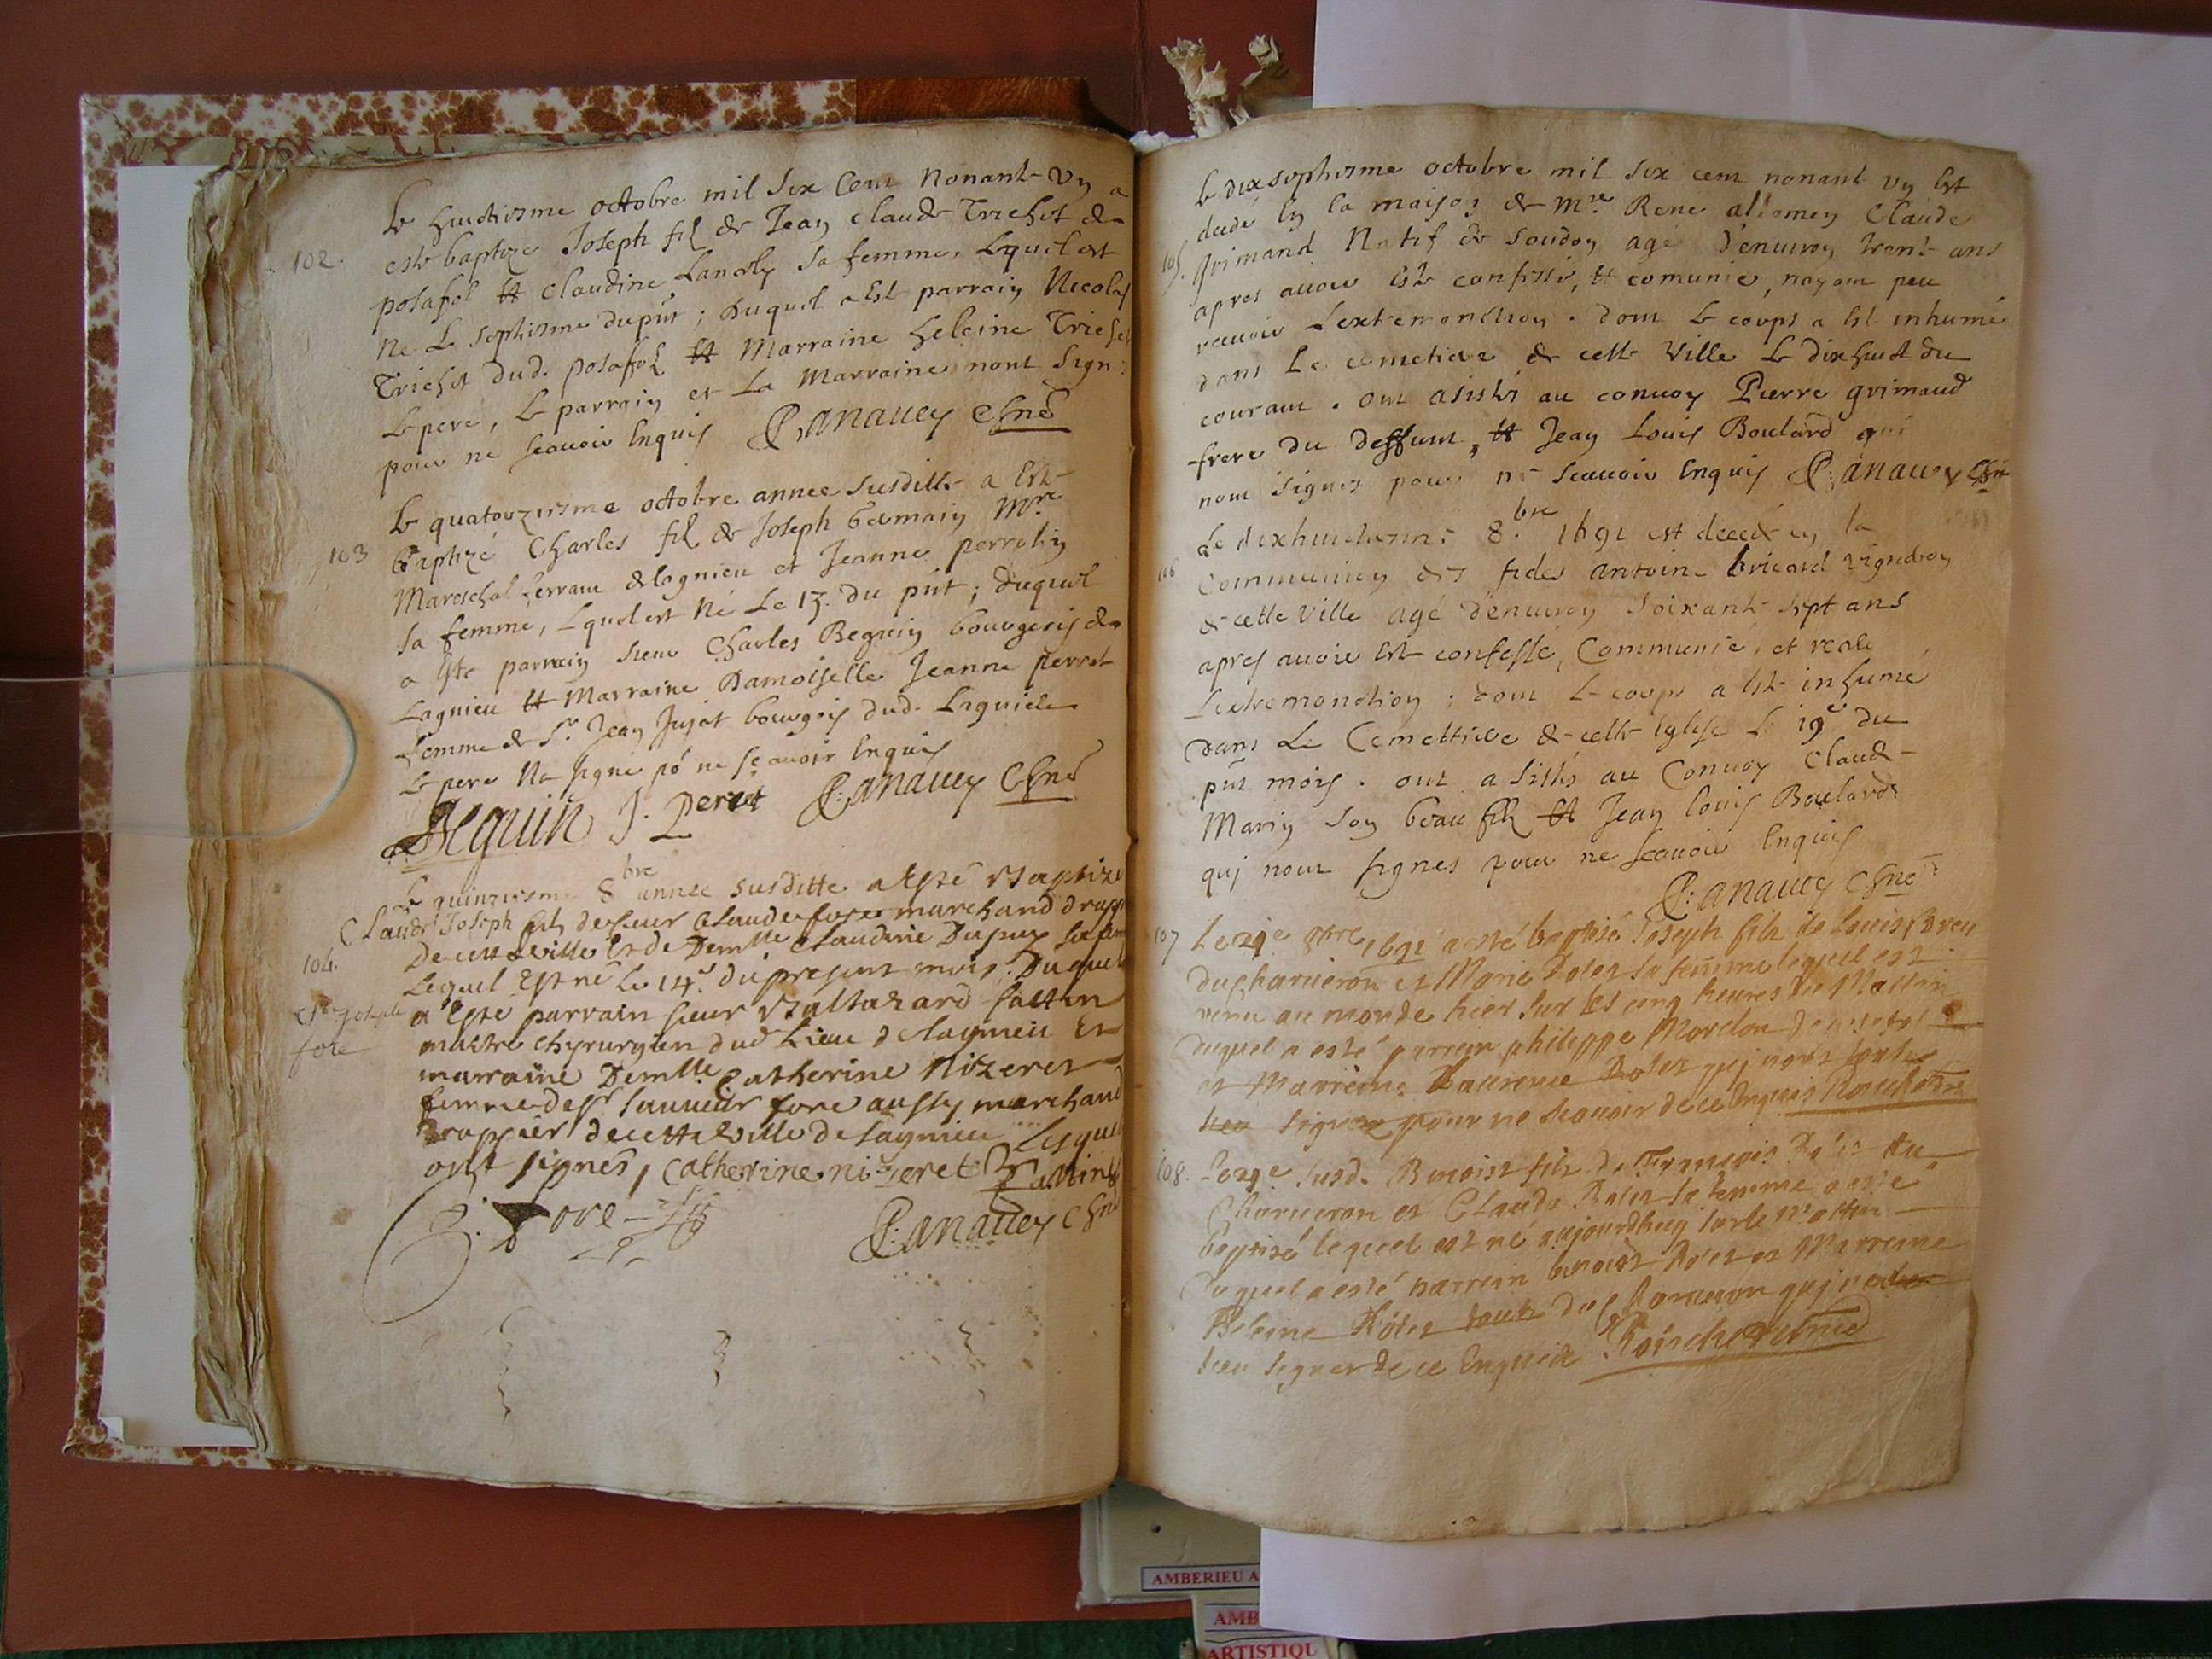 102.
Le huictiesme octobre mil six cent nonante un a
este baptize Joseph fils de Jean Claude Trichot de
posafol et Claudine Lancely sa femme, lequel est
né le septiesme du pnt ; duquel a esté parrain Nicolas
Trichot dud. posafol et Marraine heleine Trichot
Le pere, le parrain et La Marraine nont signé
pour ne scauoir Enquis P: anauey Chne
103
Le quatorziesme octobre annee susditte a esté
Baptizé Charles fils de Joseph Germain Mre
Mareschal ferrant de lagnieu et Jeanne perrolin
sa femme, lequel est Né Le 13. du pnt ; duquel
a esté parrain sieur Charles Beguin bourgeois de
Lagnieu et Marraine Damoiselle Jeanne perret
femme de Sr. Jean Jujat bourgois dud. Lagnieu
Le pere Na signe po ne scauoir Enquis
Beguin J. Peret P: anauey Chne
104.
Cl. Joseph
fore
Le quinziesme 8bre annee susditte a Esté Baptizé
Claude Joseph fils de sieur Claude fore marchand drapp
de cette ville Et de Demlle Claudine Dupuy sa fem
Lequel Est né Le 14e du present mois. Duquel
a Esté parrain sieur Baltazard fattin
maistre chyrurgien dud Lieu de Lagnieu Et
marraine Demlle Catherine Nizeret
femme de Sr fore aussy marchand
drappier de cette ville de Lagnieu Lesquel
ont signés, Catherine nizeret fattin
fore
P: anauey Chne
105.
Le dix septiesme octobre mil six cent nonante un Est
decedé En la maison de Mre René Claude
Grimand Natif de soudon agé d'enuiron trente ans
apres auoir Esté confessé, et comunié, nayant peu
receuoir Lextremonction. dont Le corps a Esté inhumé
dans Le cemetiere de cette Ville Le dixhuict du
courant. ont asistés au conuoy Pierre grimaud
frere du deffunt, et Jean Louis Boulard qui
nont signes pour ne scauoir Enquis P: anauey Chne
106
Le dixhuictiesme 8.bre 1691 est decedé en la
Communion des fideles antoine bricard vigneron
de cette Ville agé d'enuiron soixante sept ans
apres auoir Esté confessé, Communié, et receu
Lextremonction ; dont Le corps a Esté inhumé
dans Le Cemettiere de cette Eglise Le 19e du
pnt mois. ont asistés au Conuoy Claude
Marin son beau fils et Jean Louis Boulard
qui nont signes pour ne scauoir Enquis
P: anauey Chne
107
Le 21e 8bre 1691 a esté baptisé Joseph fils de Louis
du charueron et Marie Rolet sa femme lequel est
venu au monde hier sur les cinq heures du Mattin
duquel a esté parrein philippe
et Marreine Laurence Rolet qui nont
signer pour ne scauoir de ce Enquis
108.
Le 21e susd. Benoist fils de François Rolet du
Charueron et Claude Rolet sa femme a esté
baptisé lequel est né aujourdhuy sur le Mattin
duquel a esté parrein benoist Rolet et Marreine
Heleine Rolet du Charueron qui
signer de ce Enquis
AMBERIEU A
AMB
ARTISTIQU